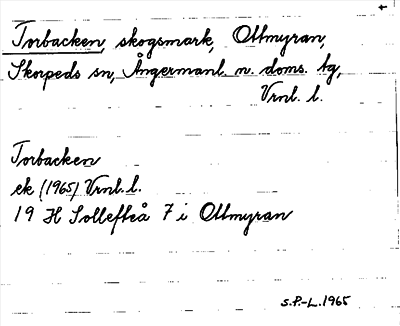 Torbacken, skogsmark, Ottmyran,
Skorpeds sn, Ångermanl. n. doms. tg,
Vrnl. l.
Torbacken
ek (1965) Vrnl. l.
19 H Sollefteå 7 i Ottmyran
S.P.-L. 1965